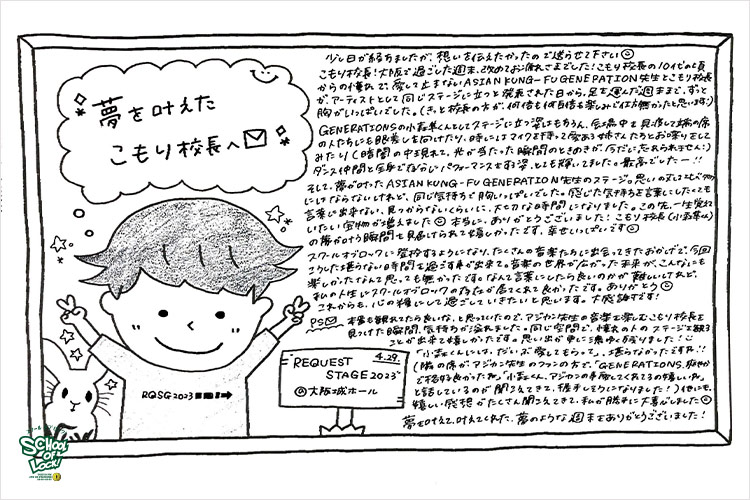 夢を叶えた
こもり校長へ
少し日が経ちましたが、想いを伝えたかったので送らせて下さい
こもり校長!大阪で過ごした週末、改めてお疲れさまでした!こもり校長の10代の頃
からの憧れで、愛して止まないASIAN KUNG-FU GENERATION先生とこもり校長
が、アーティストとして同じステージに立つと発表された日から、足を運んだ週末まで、ずっと
胸がいっぱいでした。(きっと校長の方が、何倍も何百倍も楽しみで仕方無かったと思います)
GENERATIONSの小森隼くんとしてステージに立つ姿はもちろん、会場中を見渡して端の席
の人たちにも眼差しを向けたり、時にはマイクを持って
みたり(暗闇の中現れて、光が当たった瞬間のときめきが、今だに忘れられません!)
ダンス仲間と全身で パフォーマンスをする姿、とても輝いてました。最高でしたー!!
そして、夢が叶ったASIAN KUNG-FU GENERATION先生のステージ。思いの丈は
にはならないけれど、同じ気持ちで胸いっぱいでした。感じた気持ちを言葉にしたくても
言葉に出来ない、見つからないくらいに、大切な時間になりました。この先、一生覚えて
いたい宝物が増えました 本当に、ありがとうございました!こもり校長(小森隼くん)
の夢が叶う瞬間を見届けられて嬉しかったです、幸せいっぱいです
スクールオブロックに登校するようになり、たくさんの音楽たちに出会ってきたおかげで、今回
こうした堪らない時間を過ごす事が出来て。音楽の世界が広がった未来が、こんなにも
楽しかったなんて思っても無かったです。なんて言葉にしたら良いのかが難しいけれど、
私の人生にスクールオブロックの存在が居てくれて良かったです。ありがとう
これからも、心の糧にして過ごしていきたいと思います。大感謝です!
PS 本編も観れてたら良いな、と思っていたので、アジカン先生の音楽を楽しむこもり校長を
見つけた瞬間、気持ちが溢れました。同じ空間で、憧れの人のステージを観る
ことが出来て嬉しかったです。思い出が更に濃ゆく残りました!
「小森くんには、だいぶ愛してもらって。」堪らなかったですね!!
(隣の席が、アジカン先生のファンの方で、「GENERATIONS、華やか
で格好良かったね」「小森くん、アジカンの事愛してくれてるの嬉しいね」
と話しているのが聞こえてきて、握手しそうになりました!)他にも、
嬉しい感想がたくさん聞こえてきて、私が勝手に大喜びしました
夢を叶えて、叶えてくれた、夢のような週末をありがとうございました!
RQSG2023
REQUEST
STAGE2023
4.29.
@大阪城ホール
SCHOOL
OF
LOCK!